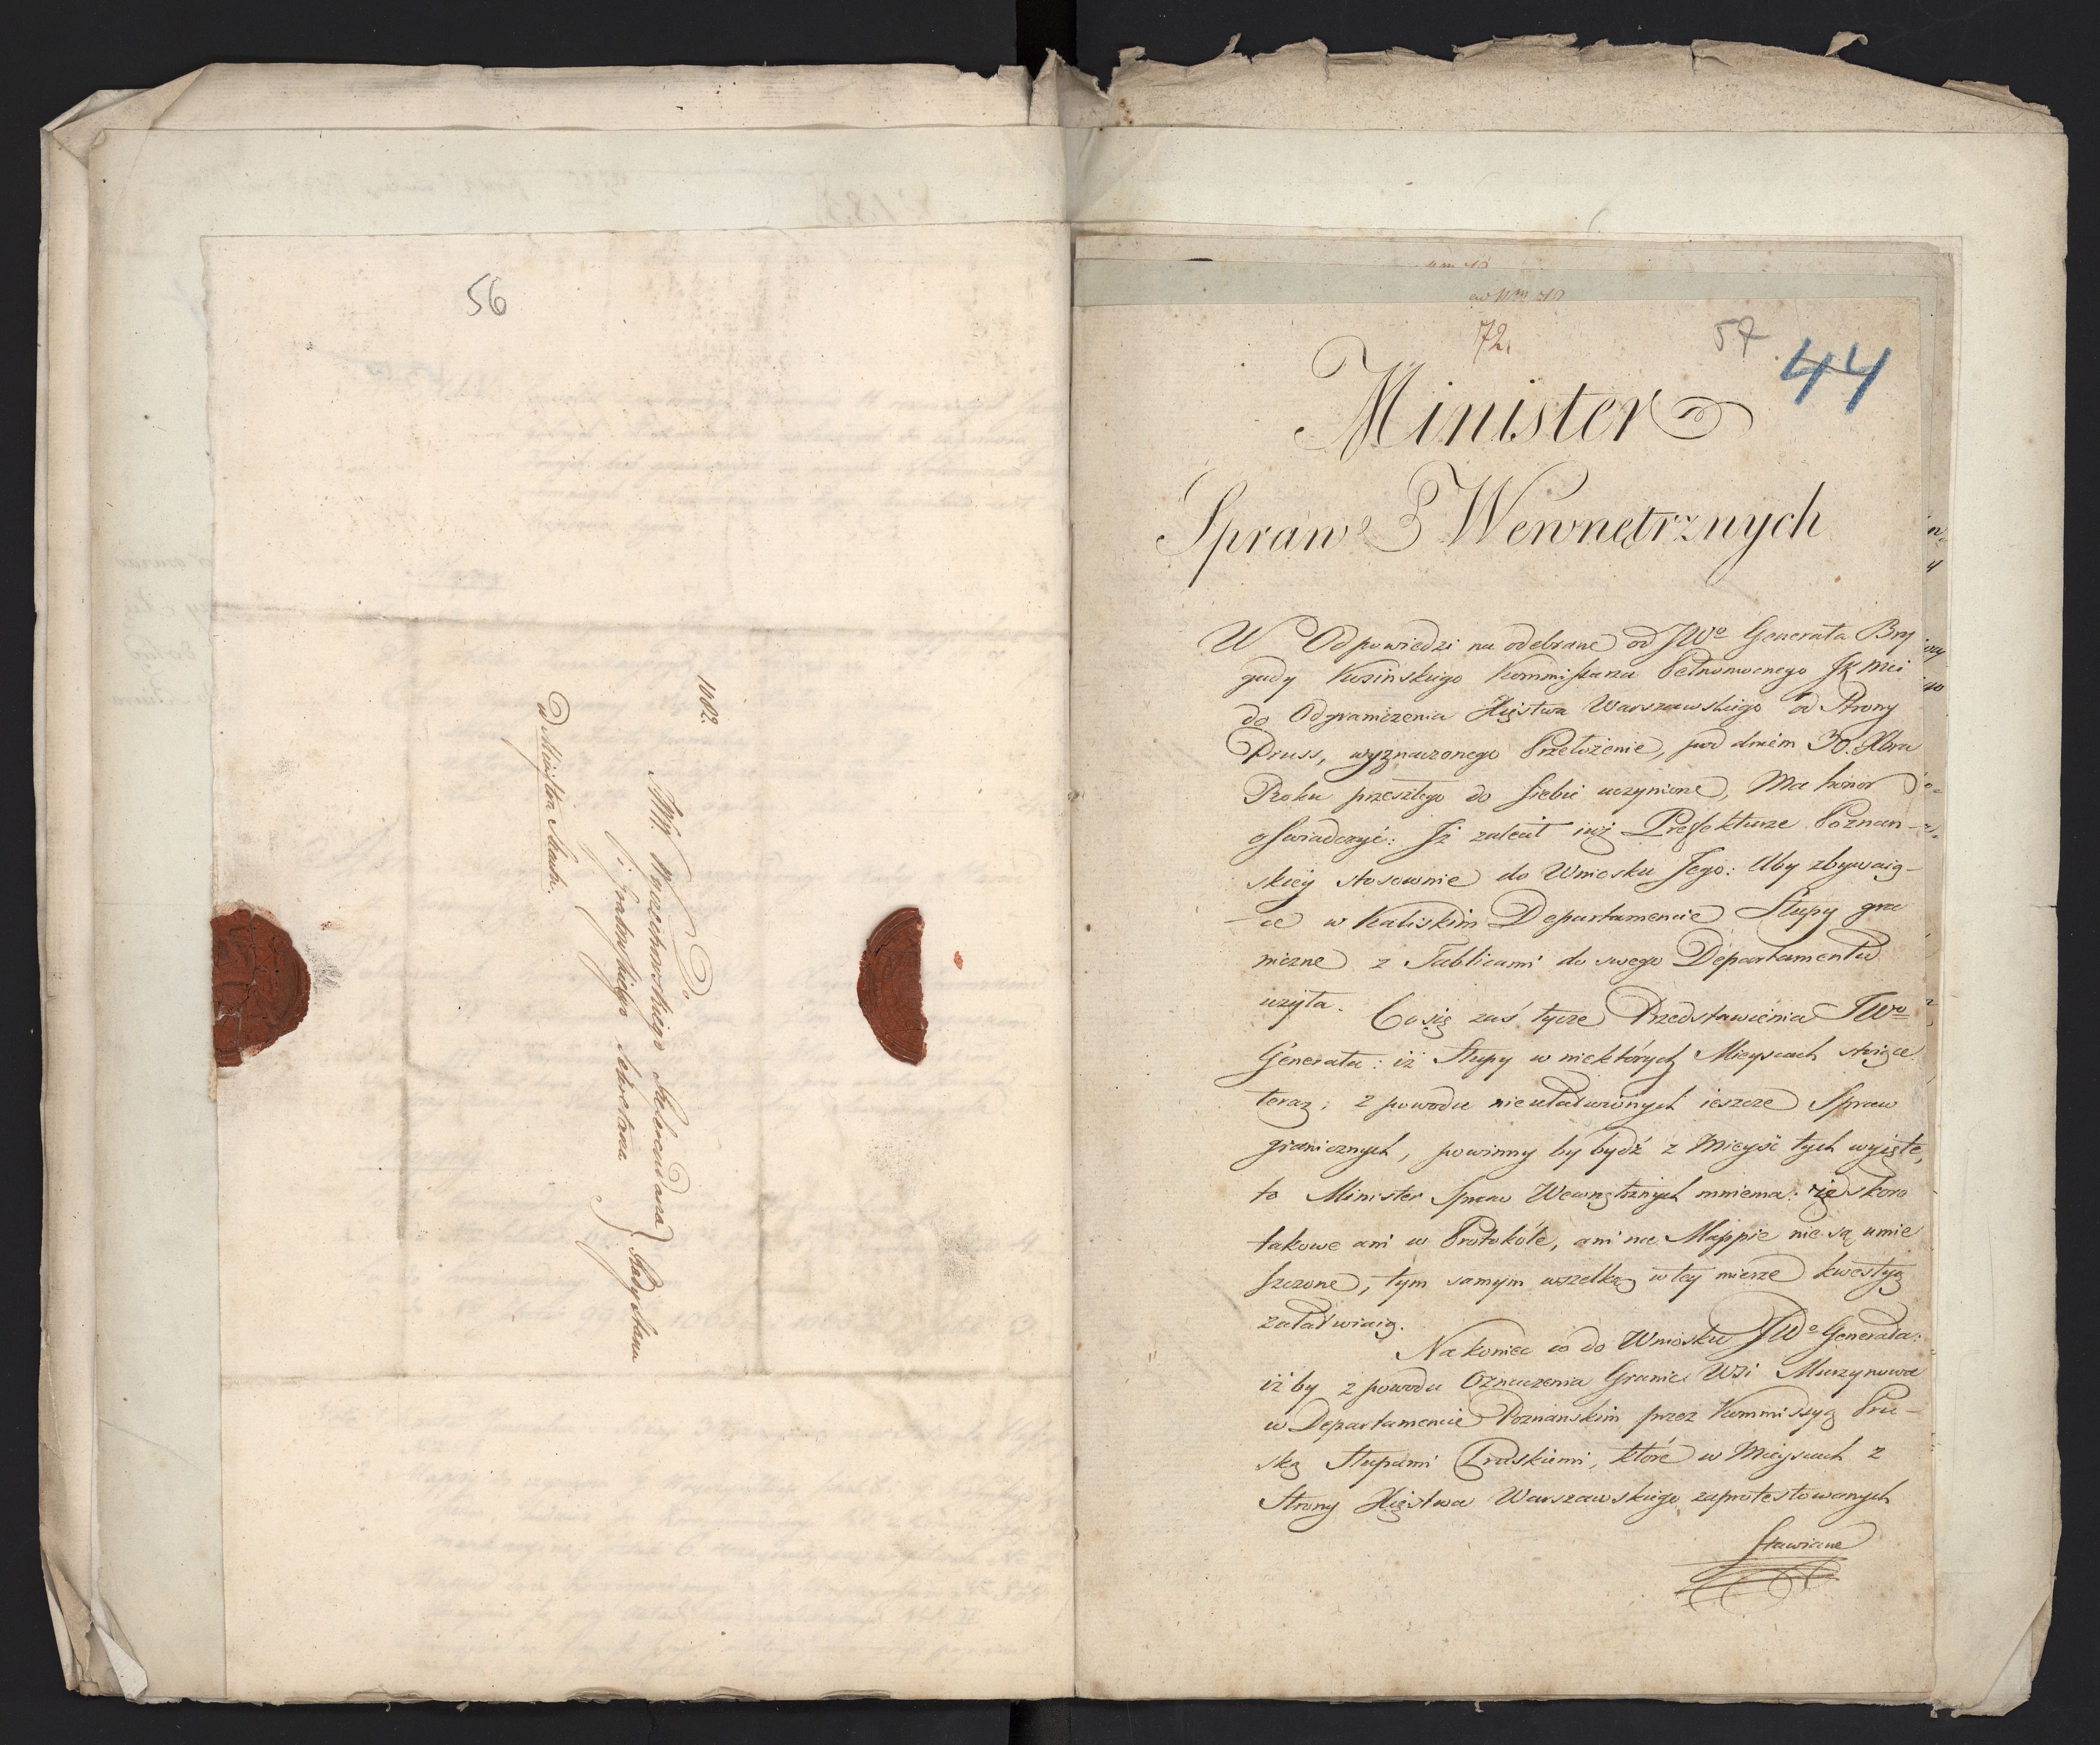 56
1002.
Do
JWW. Wojciechowskiego Referendarza
i Grabowskiego Sekretarza
Rady Stanu
a Ministra Skarbu.
72.
57.
44
Minister
Spraw Wewnętrznych
W Odpowiedzi na odebrane od JWo Generała Bry
gady Kosińskiego Kommissarza Pełnomocnego JK Mci
do Odgraniczenia Xięstwa Warszawskiego od Strony
Pruss, wyznaczonego Przełożenie, pod dniem 30. Xbra
Roku przeszłego do siebie uczynione, Ma honor
oświadczyć: Iż zalecił iuż Prefekturze Poznan-
skiey stosownie do Wniosku Jego: Aby zbywaią-
-ce w Kaliskim Departamencie Słupy gra
niczne z Tablicami do swego Departamentu
użyła.
Co się zaś tycze Przedstawienia JWo
Generała: iż Słupy w niektórych Mieyscach stoiące
teraz, z powodu nieuładwionych ieszcze Spraw
granicznych, powinny by bydź z Mieysc tych wyięte,
to Minister Spraw Wewnętrznych mniema: że skoro
takowe ani w Protokóle, ani na Mappie nie są umie
szczone, tym samym wszelką w tey mierze kwestyą
załadwiaią.
Nakoniec co do Wniosku JWo Generała:
iż by z powodu Oznaczenia Granic Wsi Murzynowa
w Departamencie Poznanskim przez Kommissyą Pru-
ską Słupami Pruskiemi, które w Mieyscach z
Strony Xięstwa Warszawskiego zaprotestowanych
stawiane